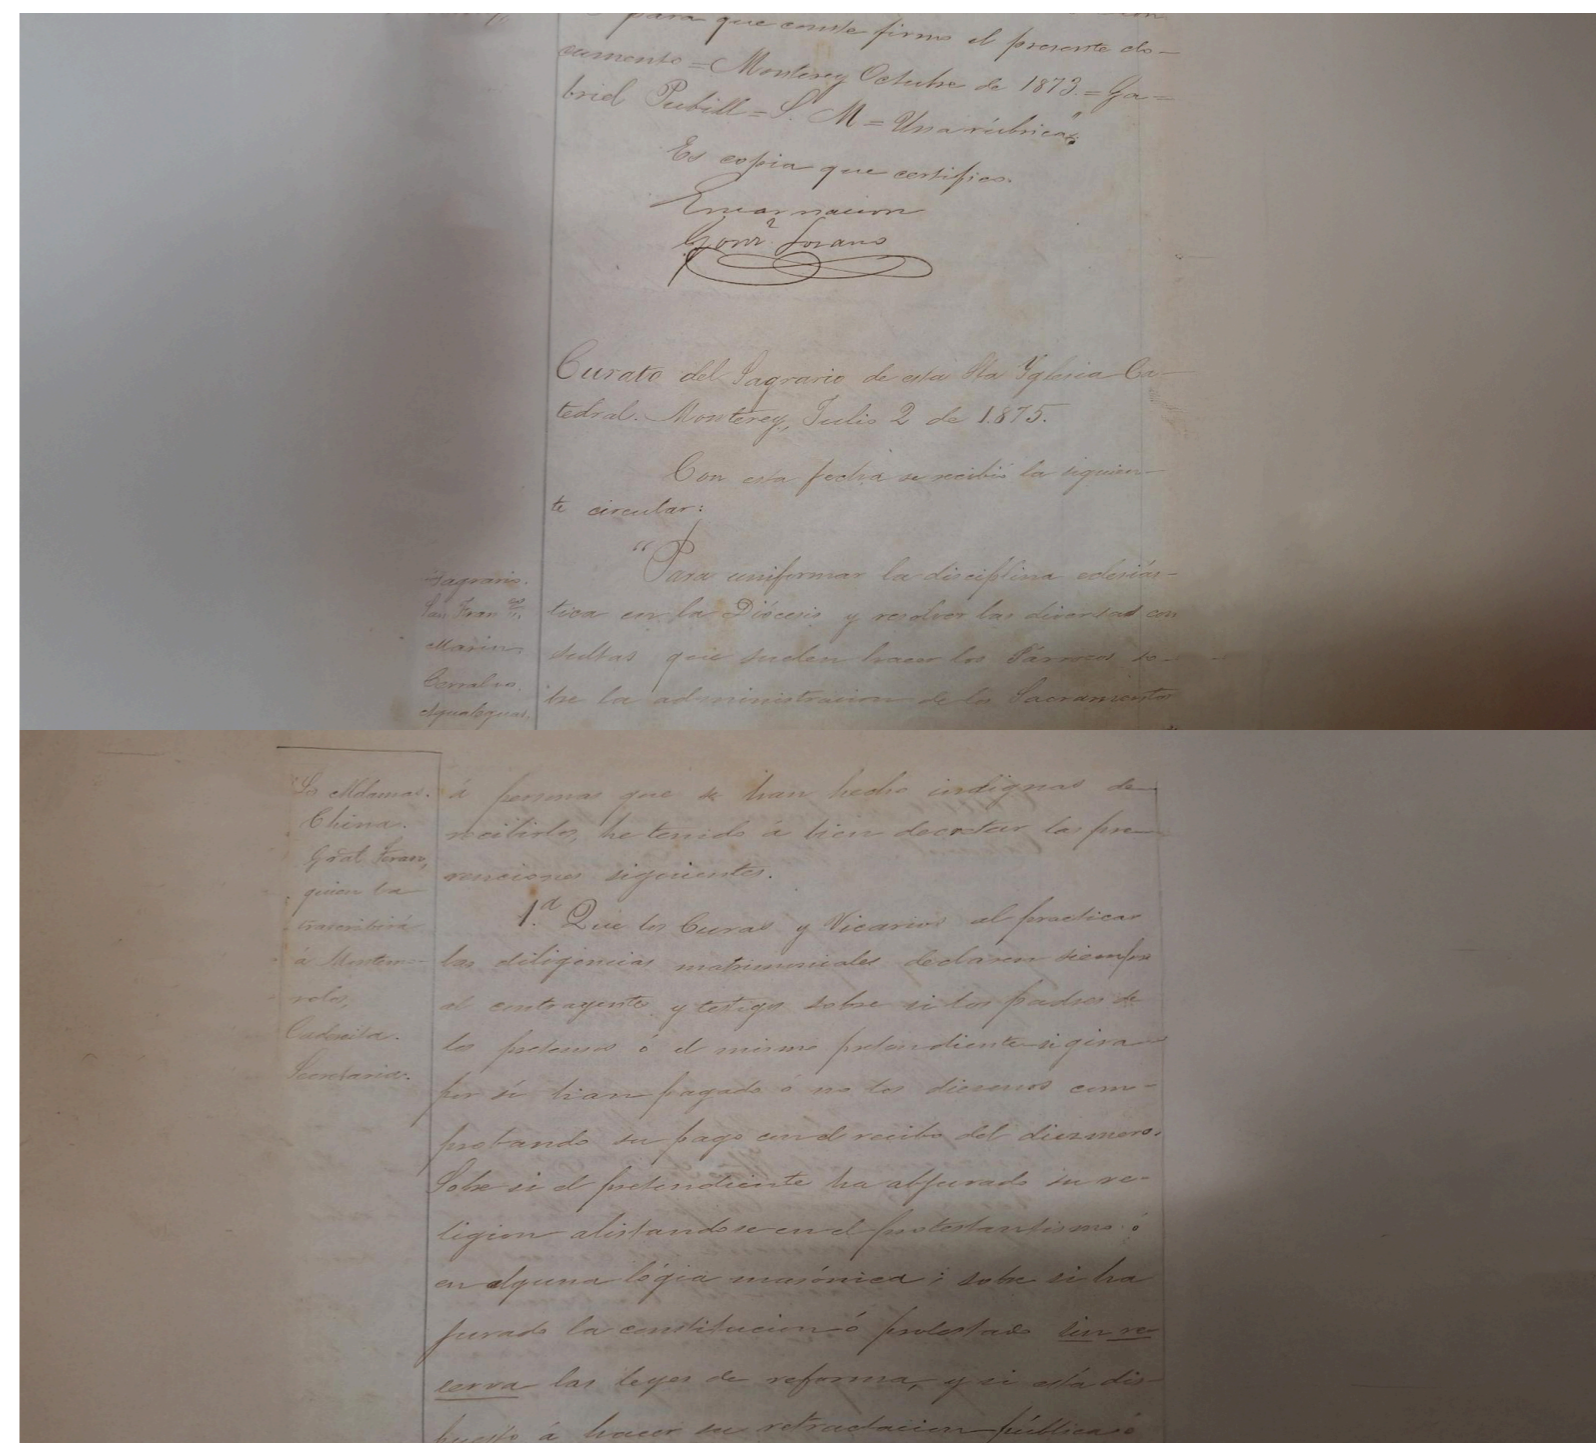 para que conste firmo el presente do-
cumento = Monterey Octubre de 1873. = Ga-
briel Pubill = S. M = Una rúbrica"
Es copia que certifico.
Encarnacion
Gonz. Lozano
Curato del Sagrario de esta Sta Yglesia Ca-
tedral. Monterey, Julio 2 de 1875.
Con esta fecha se recibió la siguien-
te circular:
"Para uniformar la disciplina eclesiás-
tica en la Diócesis y resolver las diversas con
sultas que suelen hacer los Párrocos so-
bre la administracion de los Sacramentos
Sagrario.
San Fran
Marin
Cerralvo.
Agualeguas.
á personas que se han hecho indignas de
recibirlos, he tenido á bien decretar las pre-
venciones siguientes.
1.ª Que los Curas y Vicarios al practicar
las diligencias matrimoniales declaren siempre
al contrayente y testigos sobre si los padres de
los pretensos ó el mismo pretendiente si gira
por sí han pagado ó no los diezmos com-
probando su pago con el recibo del diezmero.
Sobre si el pretendiente ha abjurado su re-
ligion alistandose en el protestantismo ó
en alguna lógia masónica; sobre si ha
jurado la constitucion ó protestado sin re
serva las leyes de reforma, y si está dis-
puesto á hacer su retractacion pública ó
Los Aldamas.
China.
Gral Teran,
quien la
trascribirá
á Montemo-
relos,
Cadereita.
Secretaria.